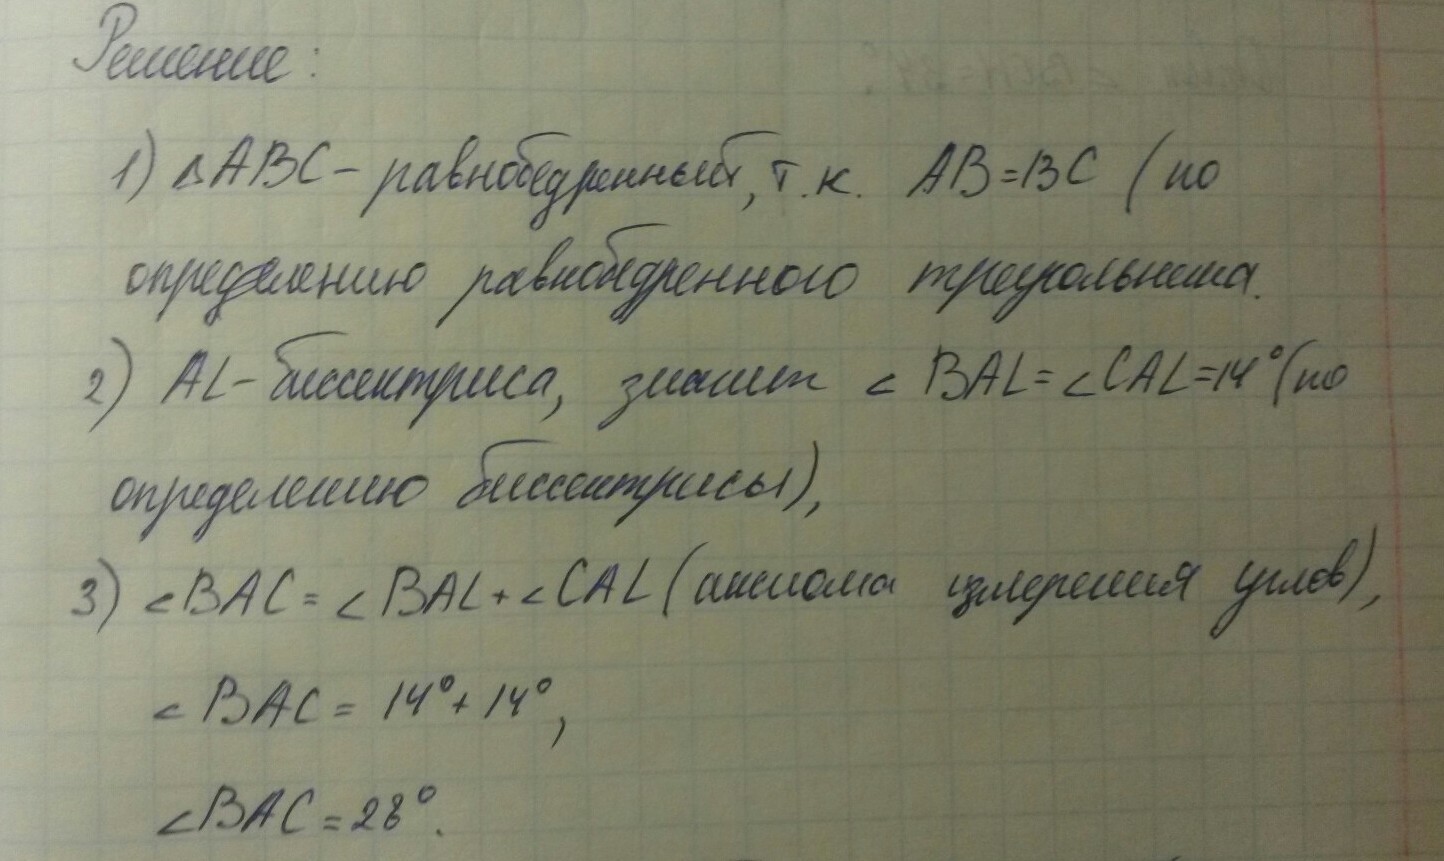 Решение:
1) △ABC – равнобедренный, т.к. AB=BC (по
определению равнобедренного треугольника.
2) AL – биссектриса, значит ∠BAL=∠CAL=14° (по
определению биссектрисы),
3) ∠BAC = ∠BAL + ∠CAL (аксиома измерения углов),
∠BAC = 14° + 14°,
∠BAC = 28°.